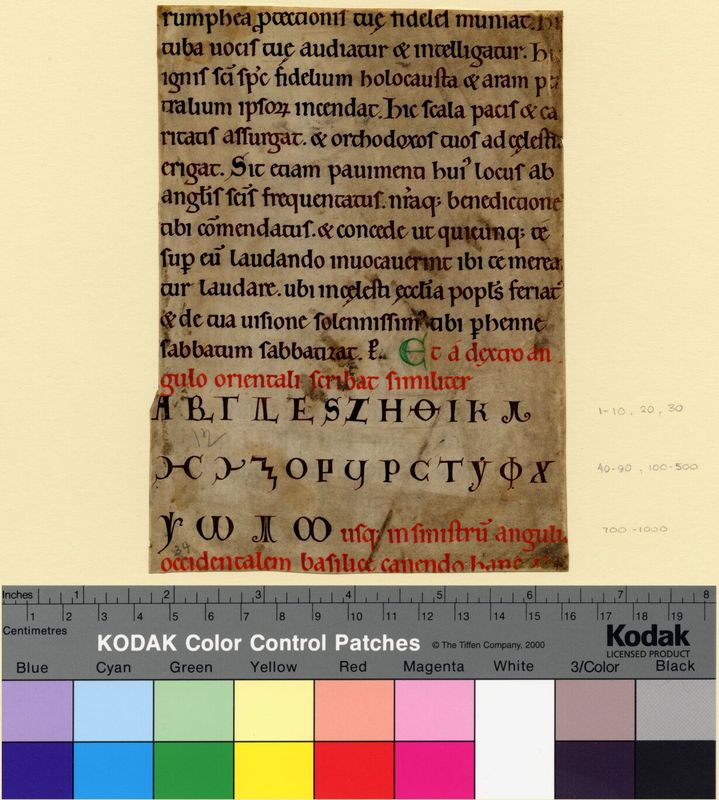 rumphea ꝓtectionis tuę fideles muniat. hi
tuba uocis tuę audiatur & intelligatur. hi
ignis sc̄i sp̄c fidelium holocausta & aram
tralium ipsoꝝ incendat. hic scala pacis & ca
ritatis assurgat. & orthodoxos tuos ad cęlesti
erigat. Sic etiam pauimenti huiꝰ locus ab
angl̄is sc̄is frequentatus. nr̄aqꝫ benedictione
tibi cōmendatus. & concede ut quicunqꝫ te
suꝑ eū laudando inuocauerint ibi te merea
tur laudare. ubi in cęlesti ęccl̄ia popl̄s feriat᷑
& de tua uisione solennissimꝰ tibi ꝑhenne
sabbatum sabbatizat. Et a dextro an
gulo orientali scribat similiter
A B Γ Δ E S Z H Θ I K Λ
12
O P Ϥ P C T Y Φ X
Ѱ Ω
34
usqꝫ in sinistrū anguli
occidentalem basilicę canendo hanc
1-10, 20, 30
40-90, 100-500
700-1000
Inches 1 2 3 4 5 6 7 8
1 2 3 4 5 6 7 8 9 10 11 12 13 14 15 16 17 18 19
Centimetres
KODAK Color Control Patches © The Tiffen Company, 2000 Kodak
LICENSED PRODUCT
Blue Cyan Green Yellow Red Magenta White 3/Color Black